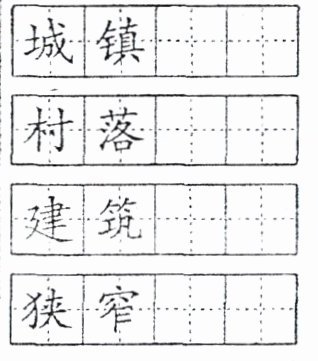 城镇
村落
建筑
狭窄